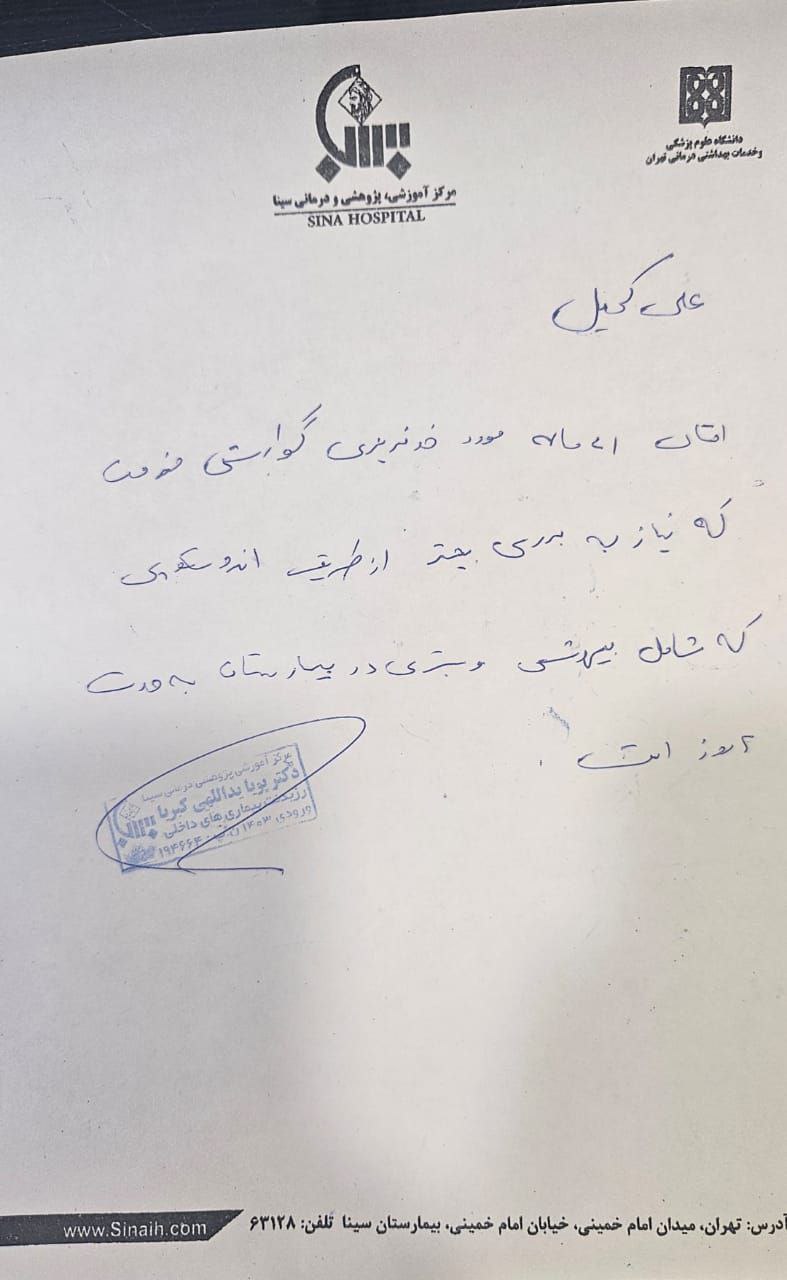 دانشگاه علوم پزشکی
و خدمات بهداشتی درمانی تهران
مرکز آموزشی، پژوهشی و درمانی سینا
SINA HOSPITAL
علی کمیل
مورد خونریزی گوارشی
که نیاز به بررسی بیشتر از طریق اندوسکوپی
که شامل بیهوشی و بستری در بیمارستان به مدت
روز است.
مرکز آموزشی پژوهشی درمانی سینا
دکتر پویا یداللهی کبریا
رزیدنت بیماری های داخلی
ورودی ۱۴۰۳ ن.پ: ۱۹۴۶۶۴
آدرس: تهران، میدان امام خمینی، خیابان امام خمینی، بیمارستان سینا تلفن: ۶۳۱۲۸
www.Sinaih.com